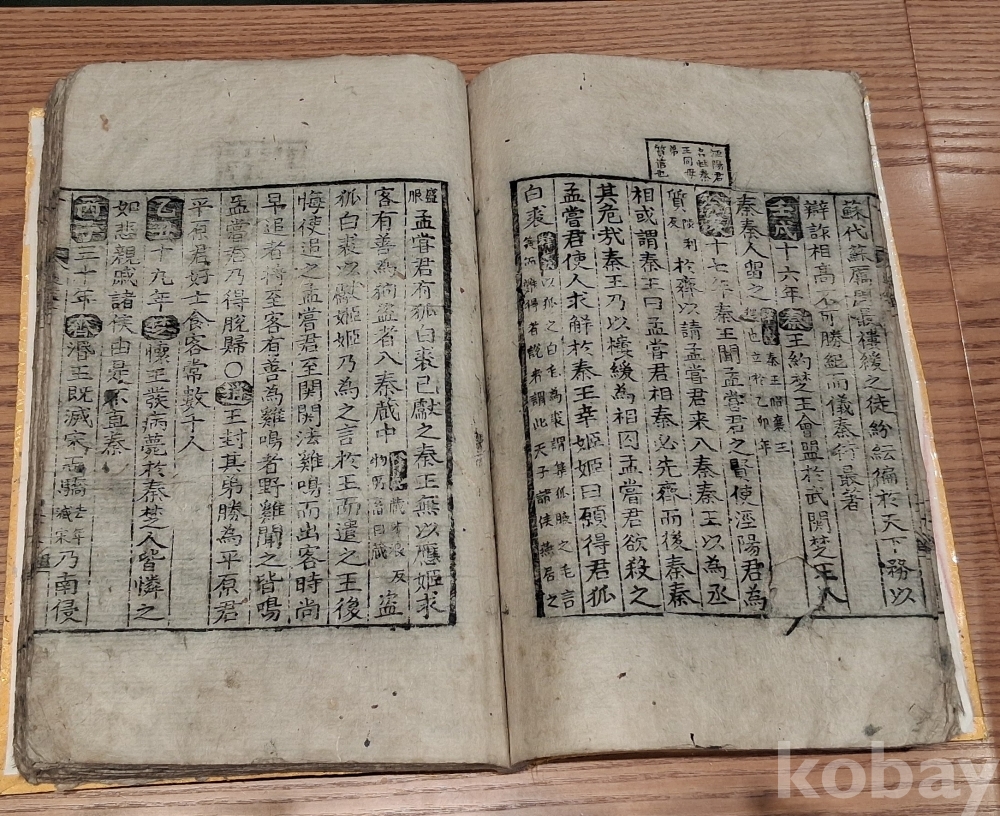 涇陽君
名巿秦
王同母
弟
質音也
蘇代蘇厲周最樓緩之徒紛紜徧於天下務以
辯詐相高不可勝紀而儀秦衍最著
壬戌十六年秦王約楚王會盟於武關楚王入
秦秦人留之 秦王昭襄王 也立於乙卯年
十七年秦王聞孟嘗君之賢使涇陽君為
質 於齊以請孟嘗君來入秦秦王以為丞
相或謂秦王曰孟嘗君相秦必先齊而後秦秦
其危哉秦王乃以樓緩為相囚孟嘗君欲殺之
孟嘗君使人求解於秦王幸姬姬曰願得君狐
白裘 以狐之白毛為裘謂集狐腋之毛言 美而難得者 此天子諸侯 居之
盛服 孟嘗君有狐白裘已獻之秦王無以應姬求
客有善為狗盜者入秦藏中 藏才浪反 物 曰藏 盜
狐白裘以獻姬姬乃為之言於王而遣之王後
悔使追之孟嘗君至関関法雞鳴而出客時尚
早追者將至客有善為雞鳴者野雞聞之皆鳴
孟嘗君乃得脫歸○趙王封其弟勝為平原君
平原君好士食客常數千人
乙丑十九年楚懷王發病薨於秦楚人皆憐之
如悲親戚諸侯由是不直秦
三十年齊湣王既滅宋而驕 滅宋 乃南侵
kobay